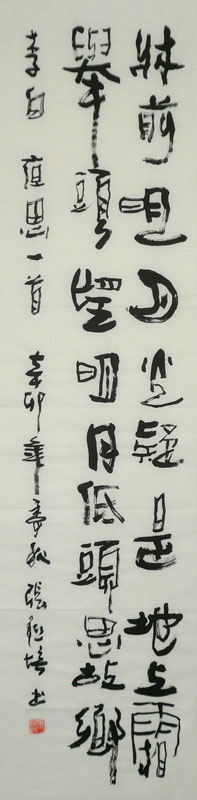 牀前明月光疑是地上霜
舉頭望明月低頭思故鄉
李白 夜思一首 辛卯年 秋 張 培书